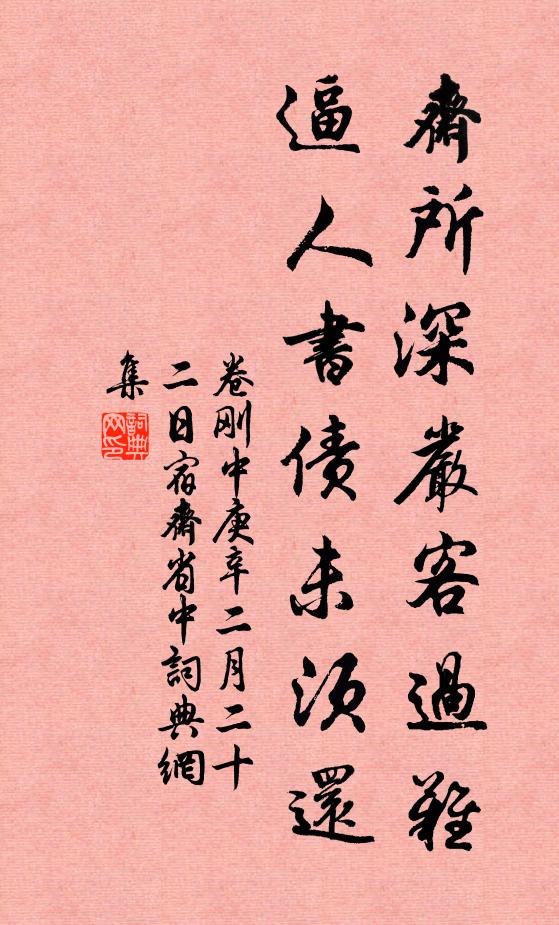 齋所深嚴客過難
逼人書債未須還
卷刚中庚辛二月二十
二日宿齋省中詞典網
集
詞典
网印